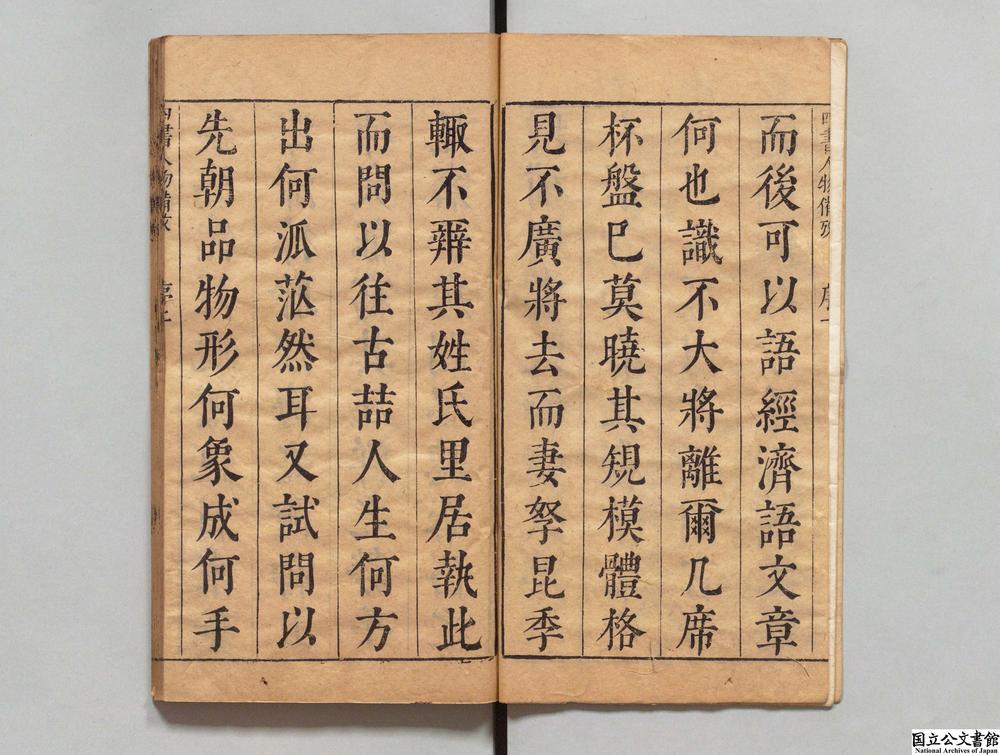 四書人物備攷 序一
而後可以語經濟語文章
何也識不大將離爾几席
杯盤已莫曉其䂓模體格
見不廣將去而妻孥昆季
輙不辨其姓氏里居執此
而問以徃古喆人生何方
出何派茫然耳又試問以
先朝品物形何象成何手
四書人物備攷 序二
国立公文書館
National Archives of Japan